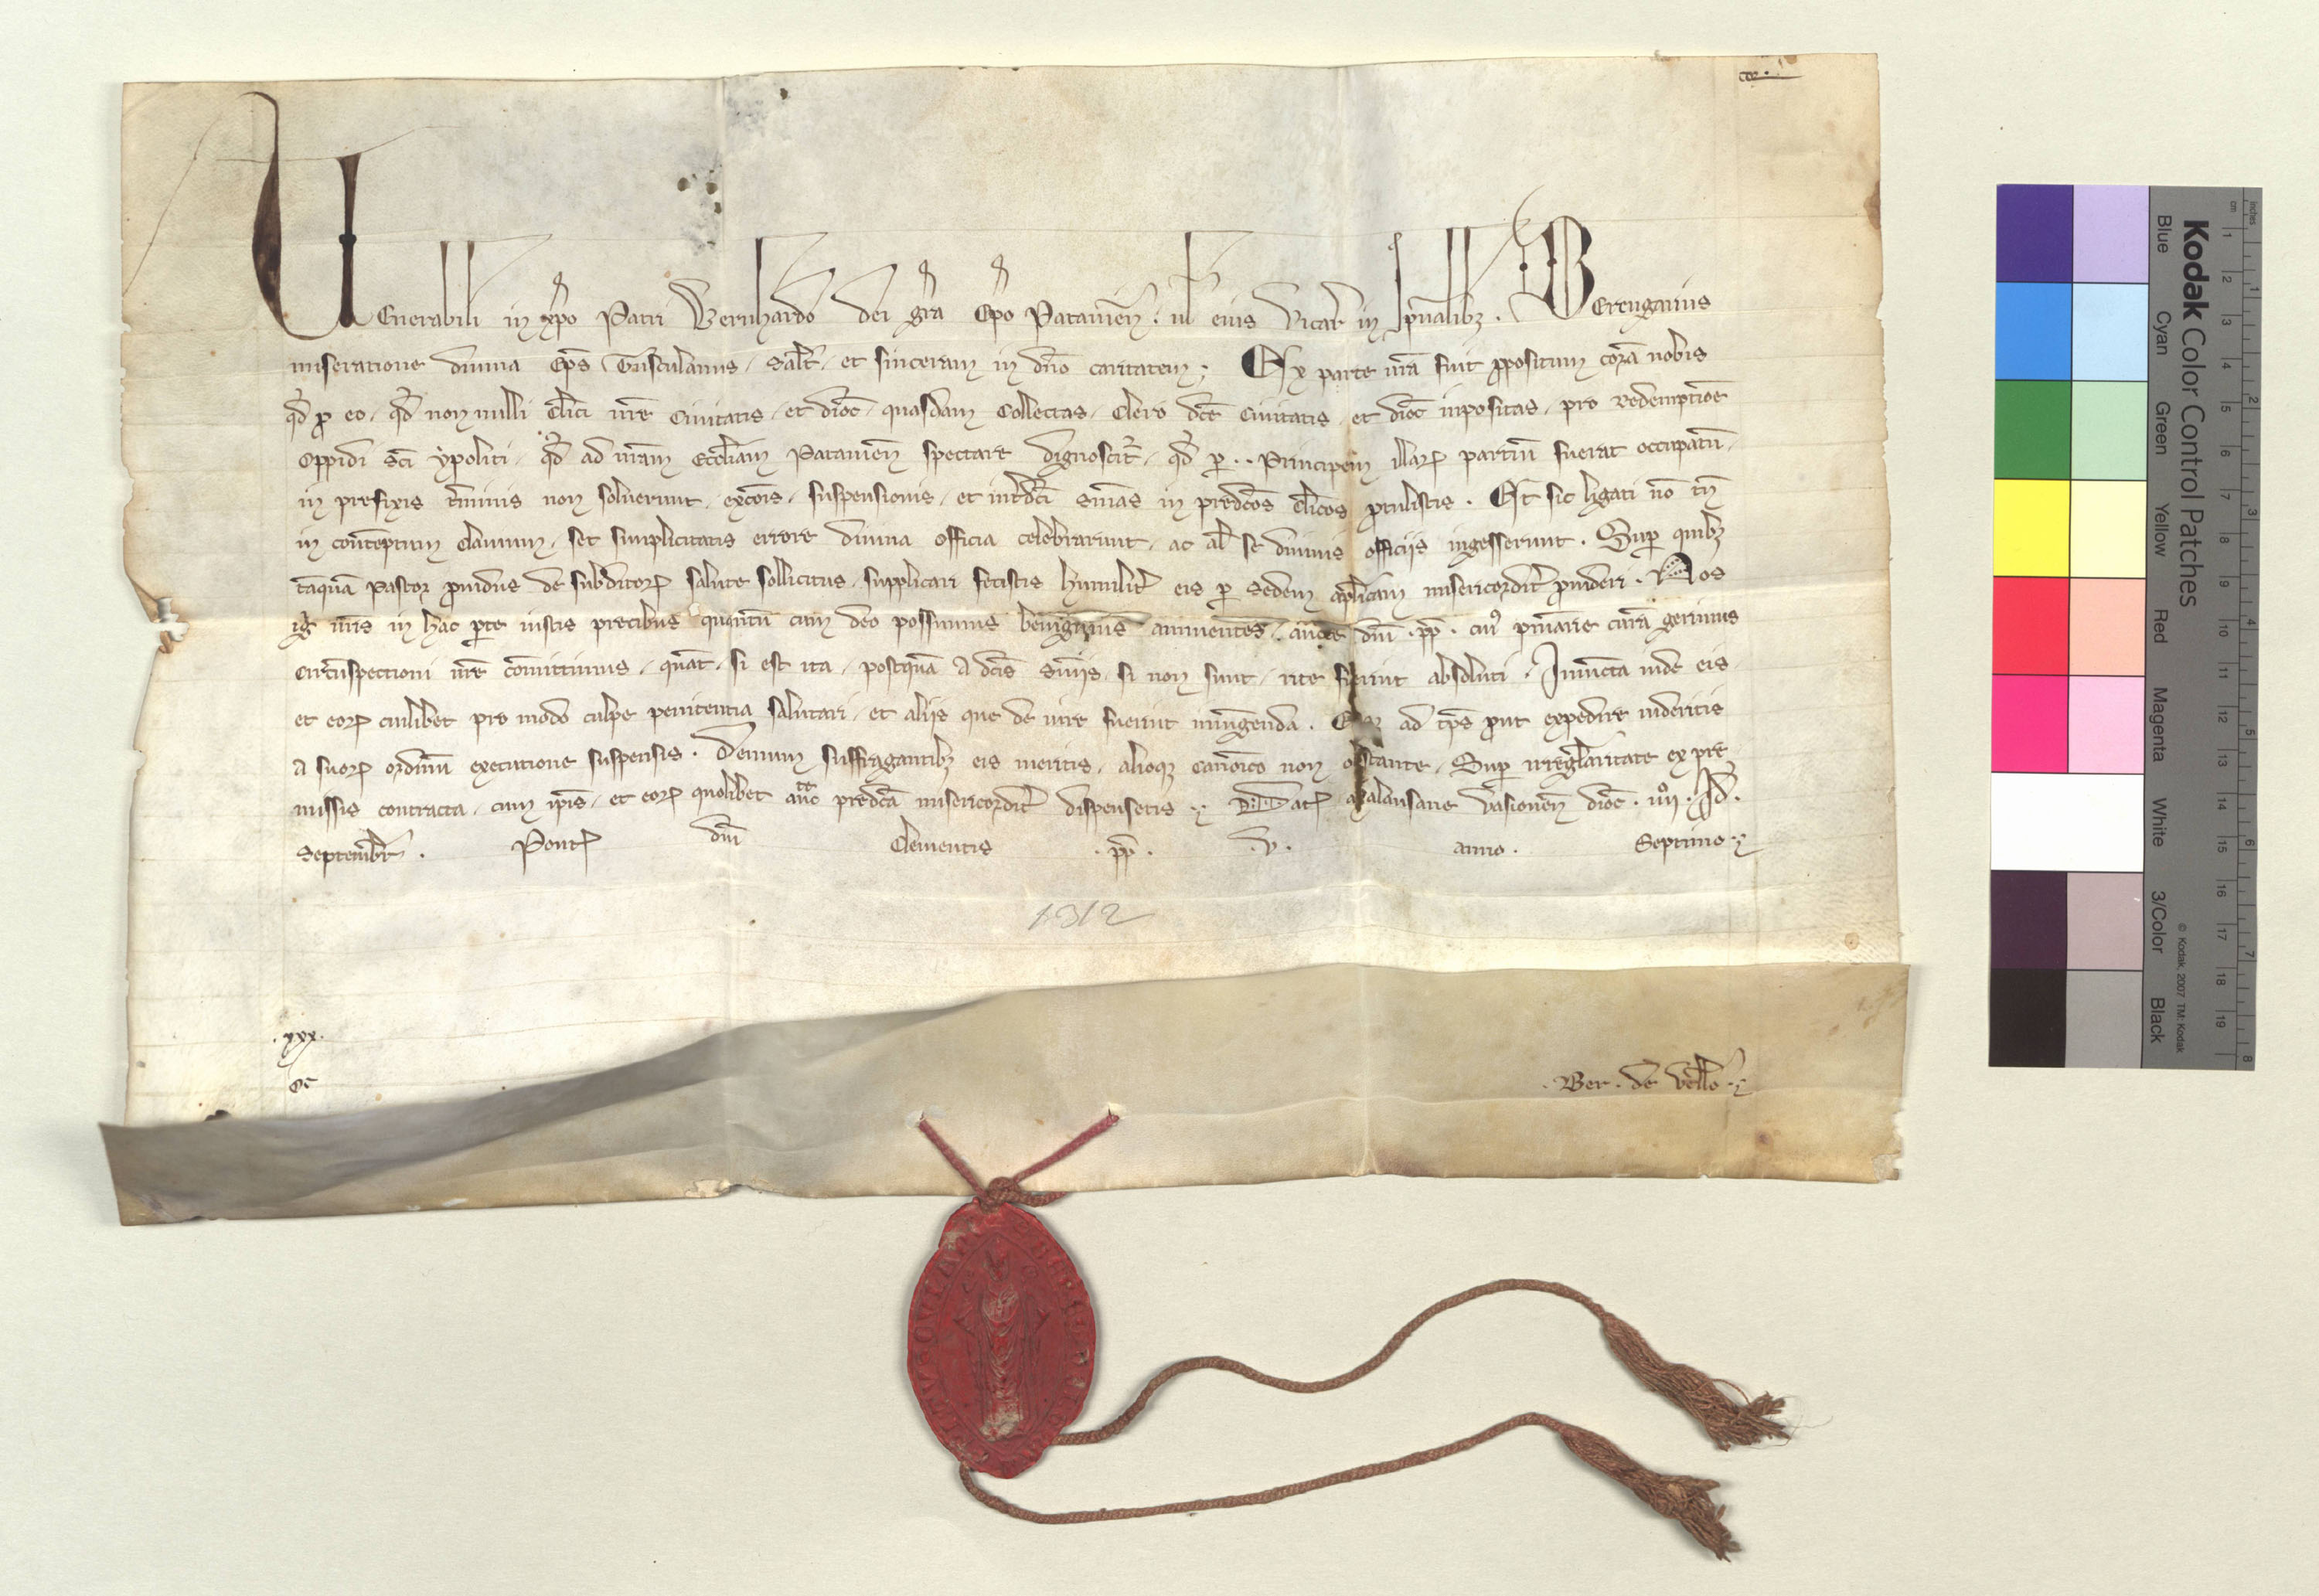 VEnerabili in xp̄o Patri Bernhardo dei gr̄a Ep̄o Patauien̄ . ul̄ eius vicar̄ in sp̄ualibꝫ . BErengarius
miseratione diuina Ep̄s Tusculanus . sal̄t . et sinceram in dn̄o caritatem ; Ex parte ur̄a fuit ꝓpositum corā nobis
qd̄ ꝓ eo . qd̄ non nulli cl̄ici ur̄e Ciuitatis . et dioc̄ . quasdam Collectas . Clero dc̄e Ciuitatis . et dioc̄ inpositas . pro redemptiōe
Oppidi sc̄i ypoliti . qd̄ ad ur̄am Eccl̄iam Patauien̄ spectare dignoscit̄ . qd̄ ꝑ . . Principem illaꝝ partiū fuerat occupatū .
in prefixis t̄minis non soluerunt . exc̄ois . suspensionis . et int̄dc̄i sn̄ias in predc̄os cl̄icos ꝓtulistis . Et sic ligati nō tn̄
in contēptum clauium . set simplicitatis errore diuina officia celebrarunt . ac al̄ se diuinis officijs ingesserunt . Suꝑ quibꝫ
tāquā Pastor ꝓuidus de subditoꝝ salute sollicitus . supplicari fecistis humilit̄ eis ꝑ sedem apl̄icam misericordit̄ ꝓuideri . Nos
iḡ ur̄is in hac ꝑte iustis precibus quantū cum deo possumus benignius annuentes . auct̄e dn̄i . pp̄ . cuiꝰ pn̄iarie curā gerimus
circūspectioni ur̄e cōmittimus . quat̄ . si est ita . postquā a dc̄is sn̄ijs . si non sunt . rite fuerint absoluti . Iniuncta inde eis .
et eoꝝ cuilibet pro modo culpe penitentia salutari . et alijs que de iure fuerint iniungenda . ad tp̄s ꝓut expedire uideritis
a suoꝝ ordinū executione suspensis . Demum suffragantibꝫ eis meritis . alioqꝫ canōico non obstante . Suꝑ irregl̄aritate ex pre
missis contracta . cum ip̄is . et eoꝝ quolibet auc̄te predc̄a misericordit̄ dispensetis ⁊ Datꝝ aalansane vasionen̄ dioc̄ . iiij . Id̄ .
Septembr̄ . Pont̄ dn̄i Clementis . pp̄ . v . anno . Septimo ⁊
1312
. xxx .
. Ber . de vell̄o ⁊
Kodak Color Control Patches
Blue Cyan Green Yellow Red Magenta White 3/Color Black
© Kodak, 2007 TM: Kodak
inches 1 2 3 4 5 6 7 8
cm 1 2 3 4 5 6 7 8 9 10 11 12 13 14 15 16 17 18 19